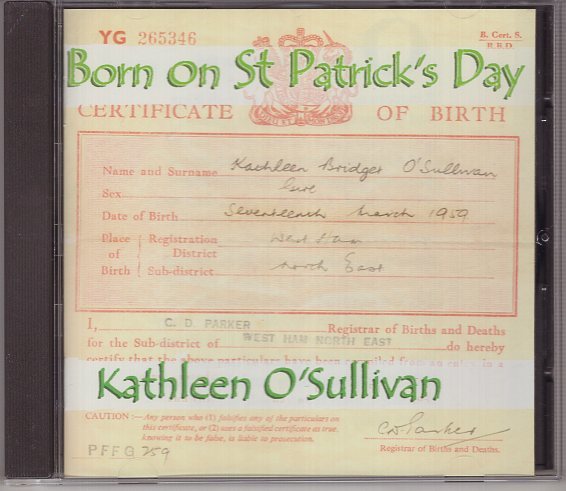 YG 265346
B. Cert. S.
R.B.D.
Born on St Patrick's Day
CERTIFICATE OF BIRTH
Name and Surname Kathleen Bridget O'Sullivan
Sex
Date of Birth Seventeenth March 1959
Place of Birth { Registration District West Ham
Sub-district North East
I, C. D. PARKER Registrar of Births and Deaths
for the Sub-district of WEST HAM NORTH EAST do hereby
certify that the above particulars have been compiled from an entry in a
Kathleen O'Sullivan
CAUTION :—Any person who (1) falsifies any of the particulars on
this certificate, or (2) uses a falsified certificate as true,
knowing it to be false, is liable to prosecution.
CD Parker
Registrar of Births and Deaths.
PFFG 259